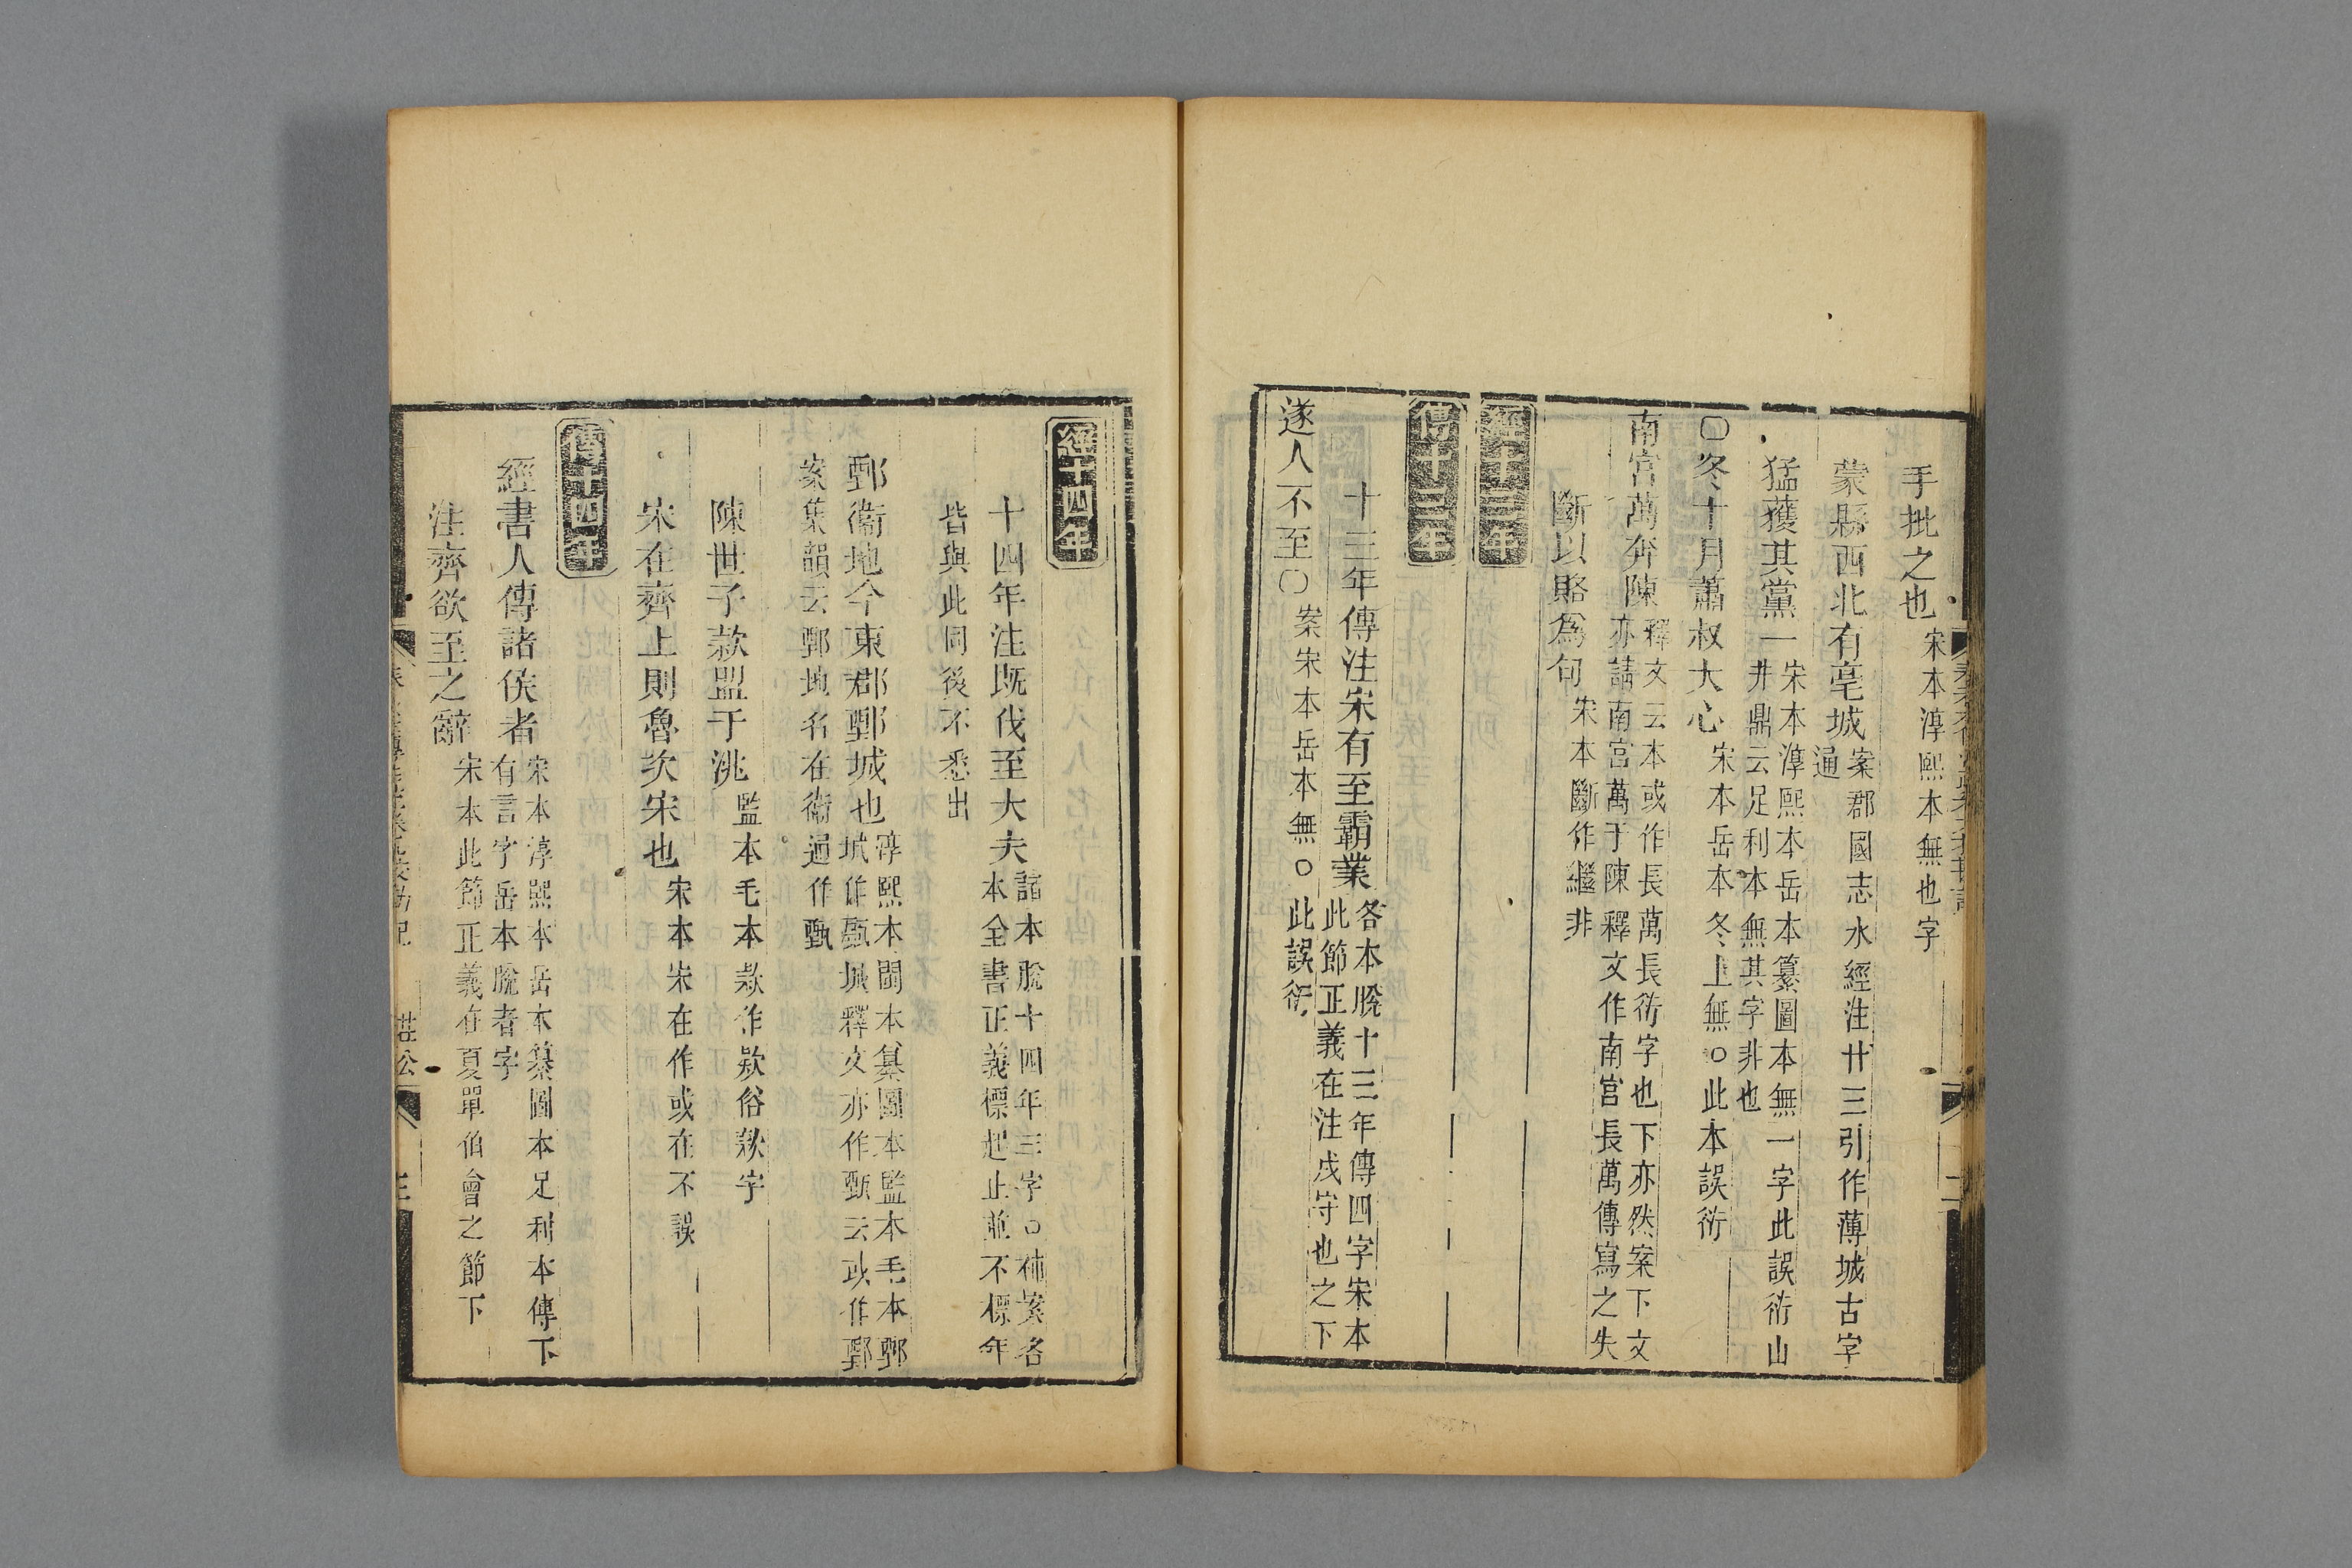 手批之也宋本淳熙本無也字
蒙縣西北有亳城案郡國志水經注廿三引作薄城古字通
猛獲其黨一宋本淳熙本岳本纂圖本無一字此誤衍山井鼎云足利本無其字非也
〇冬十月蕭叔大心宋本岳本冬上無〇此本誤衍
南宮萬奔陳釋文云本或作長萬長衍字也下亦然案下文亦請南宮萬于陳釋文作南宮長萬傳寫之失
斷以賂爲句宋本斷作繼非
經十三年
傳十三年
十三年傳注宋有至霸業各本脫十三年傳四字宋本此節正義在注戍守也之下
遂人不至〇案宋本岳本無〇此誤衍
經十四年
十四年注既伐至大夫諸本脫十四年三字〇補案各本全書正義標起止並不標年
皆與此同後不悉出
鄄衞地今東郡鄄城也淳熙本閩本纂圖本監本毛本鄄城作甄城釋文亦作甄云或作鄄
案集韻云鄄地名在衞通作甄
陳世子款盟于洮監本毛本款作欵俗款字
宋在齊上則魯次宋也宋本宋在作或在不誤
傳十四年
經書人傳諸侯者宋本淳熙本岳本纂圖本足利本傳下有言字岳本脫者字
注齊欲至之辭宋本此節正義在夏單伯會之節下
莊公